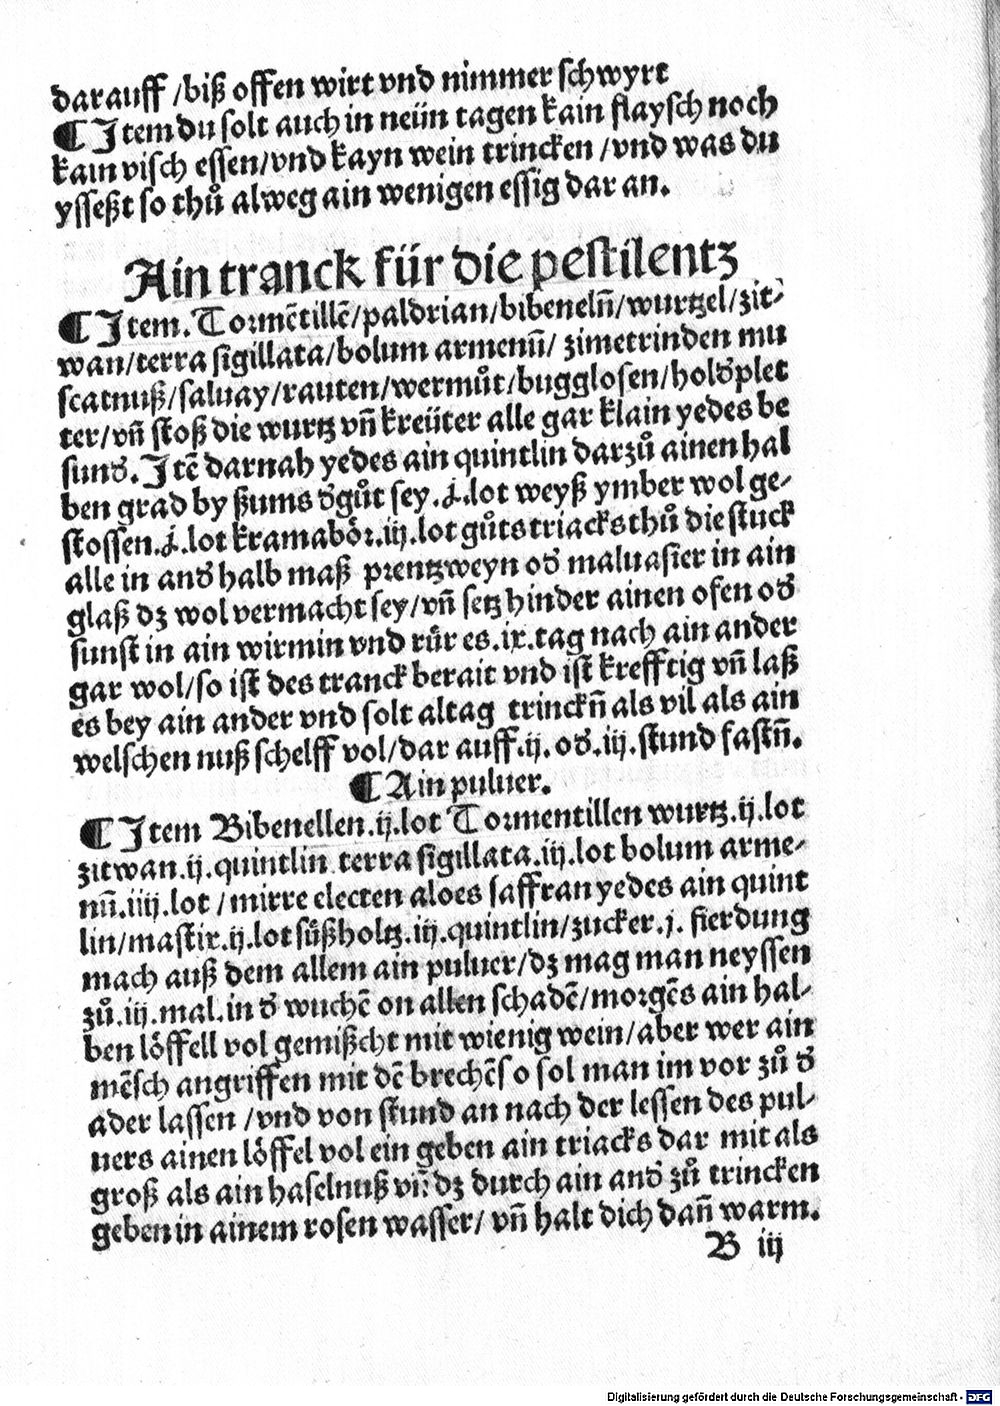 darauff /biß offen wirt vnd nimmer schwyrt
¶ Item du solt auch in neün tagen kain flaysch noch
kain visch essen/vnd kayn wein trincken /vnd was du
yssest so thuͦ alweg ain wenigen essig dar an.
Ain tranck für die pestilentz
¶ Item. Tormētillē/paldrian/bibenelñ/wurtzel/zit⸗
wan/terra sigillata/bolum armenū/ zimetrinden mu
scatnuß/saluay/rauten/wermuͦt/bugglosen/holdꝰplet
ter/vñ stoß die wurtz vñ kreüter alle gar klain yedes be
sundꝰ. Itē darnah yedes ain quintlin darzuͦ ainen hal
ben grad by ßums dꝰguͦt sey .j. lot weyß ymber wol ge⸗
stossen .j. lot kramaboͤr .iij. lot guͦts triacks thuͦ die stuck
alle in andꝰhalb maß prentzweyn odꝰ maluasier in ain
glaß dz wol vermacht sey/vñ setz hinder ainen ofen odꝰ
sunst in ain wirmin vnd ruͤr es .ix. tag nach ain ander
gar wol/so ist des tranck berait vnd ist krefftig vñ laß
es bey ain ander vnd solt altag trinckñ als vil als ain
welschen nuß schelff vol/dar auff .ij. odꝰ .iij. stund fastñ.
¶ Ain puluer.
¶ Item Bibenellen .ij. lot Tormentillen wurtz .ij. lot
zitwan .ij. quintlin terra sigillata .iij. lot bolum arme⸗
nū .iiij. lot /mirre electen aloes saffran yedes ain quint
lin/mastix .ij. lot suͤßholtz .iij. quintlin/zucker .j. fierdung
mach auß dem allem ain puluer/dz mag man neyssen
zuͦ .iij. mal. in dꝰ wuchē on allen schadē/morgēs ain hal⸗
ben loͤffell vol gemißcht mit wienig wein/aber wer ain
mēsch angriffen mit dē brechē so sol man im vor zuͦ dꝰ
ader lassen /vnd von stund an nach der lessen des pul⸗
uers ainen loͤffel vol ein geben ain triacks dar mit als
groß als ain haselnuß vñ dz durch ain andꝰ zuͦ trincken
geben in ainem rosen wasser/ vñ halt dich dañ warm.
B iij
Digitalisierung gefördert durch die Deutsche Forschungsgemeinschaft - DFG